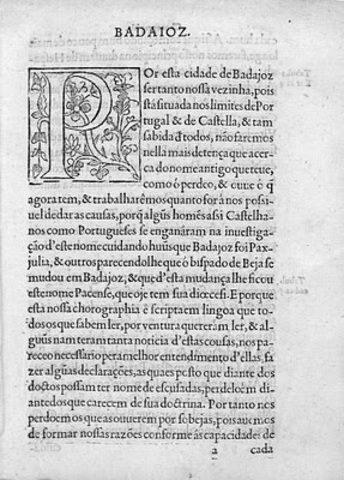 BADAIOZ.
POr esta cidade de Badajoz
ser tanto nossa vezinha, pois
está situada nos limites de Por
tugal & de Castella, & tam
sabida d̃ todos, não faremos
nella mais detença que acer-
ca do nome antigo que teue,
como ó perdeo, & ouue ó q̃
agora tem, & trabalharêmos quanto for á nos possi-
uel dedar as causas, porq̃ algũs homẽs assi Castelha-
nos como Portugueses se enganaram na inuestiga-
ção d'este nome cuidando huũs que Badajoz foi Pax-
julia, & outros parecendolhe que ó bispado de Beja se
mudou em Badajoz, & que d'esta mudança lhe ficou
este nome Pacense, que oje tem sua diocesi. E porque
esta nossa chorographia é scripta em lingoa que to-
dos os que sabem ler, por ventura quereram ler, & al-
guũs nam teram tanta noticia d'estas cousas, nos pa-
receo necessario pera melhor entendimento d'ellas, fa
zer algũas declarações, as quaes posto que diante dos
doctos possam ter nome de escusadas, perdeloẽm di-
ante dos que carecem de sua doctrina. Por tanto nos
perdoem os que as ouuerem por sobejas, pois auemos
de formar nossas razões conforme ás capacidades de
a cada